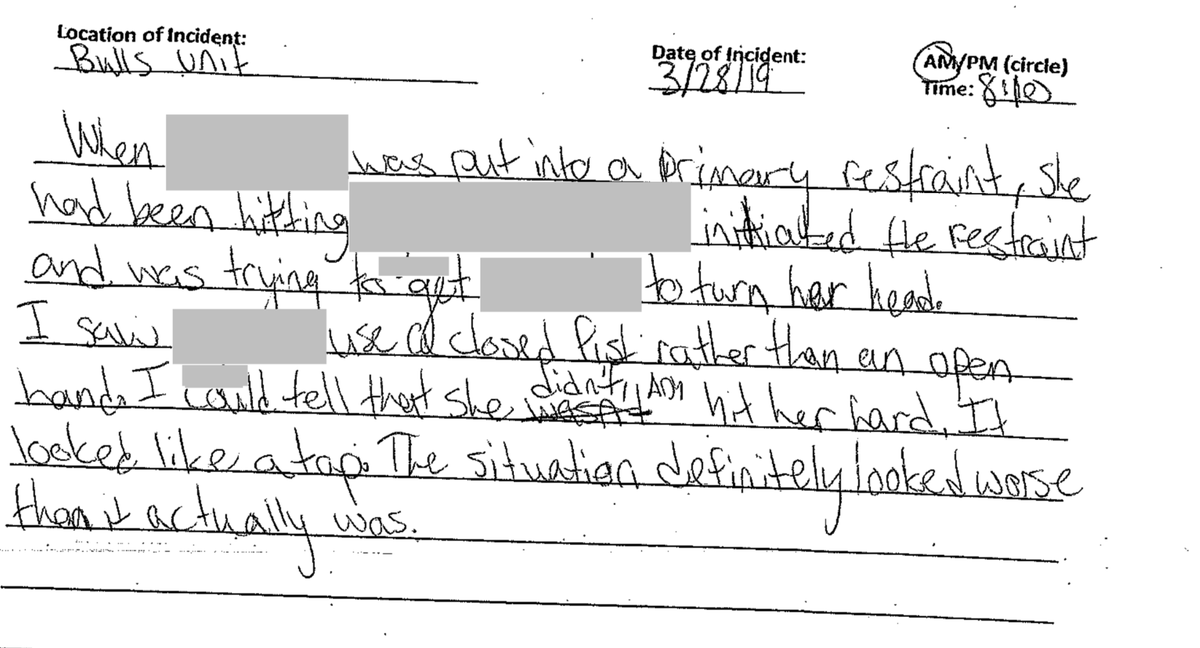 Location of Incident:
Bulls Unit
Date of Incident:
3/28/19
AM/PM (circle)
Time: 8:10
When was put into a primary restraint, she
had been hitting initiated the restraint
and was trying to get to turn her head.
I saw use a closed fist rather than an open
hand. I could tell that she didn't hit her hard. It
looked like a tap. The situation definitely looked worse
than it actually was.